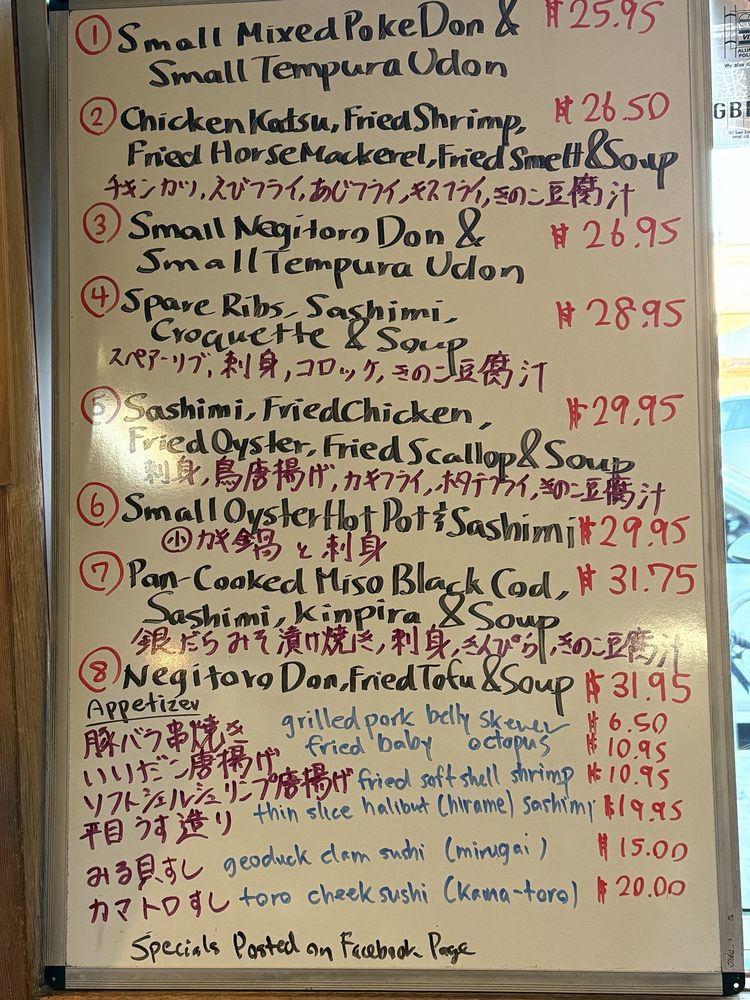 ① Small Mixed Poke Don & $25.95
Small Tempura Udon
② Chicken Katsu, Fried Shrimp, $26.50
Fried Horse Mackerel, Fried Smelt & Soup
チキンカツ, えびフライ, あじフライ, キスフライ, きのこ豆腐汁
③ Small Negitoro Don & $26.95
Small Tempura Udon
④ Spare Ribs, Sashimi, $28.95
Croquette & Soup
スペアーリブ, 刺身, コロッケ, きのこ豆腐汁
⑤ Sashimi, Fried Chicken, $29.95
Fried Oyster, Fried Scallop & Soup
刺身, 鳥唐揚げ, カキフライ, ホタテフライ, きのこ豆腐汁
⑥ Small Oyster Hot Pot & Sashimi $29.95
小 カキ鍋 と 刺身
⑦ Pan-Cooked Miso Black Cod, $31.75
Sashimi, Kinpira & Soup
銀だらみそ漬け焼き, 刺身, きんぴら, きのこ豆腐汁
⑧ Negitoro Don, Fried Tofu & Soup $31.95
Appetizer
豚バラ串焼き grilled pork belly skewer $6.50
いいだこ唐揚げ fried baby octopus $10.95
ソフトシェルシュリンプ唐揚げ fried soft shell shrimp $10.95
平目うす造り thin slice halibut (hirame) sashimi $19.95
みる貝すし geoduck clam sushi (mirugai) $15.00
カマトロすし toro cheek sushi (kama-toro) $20.00
Specials Posted on Facebook Page